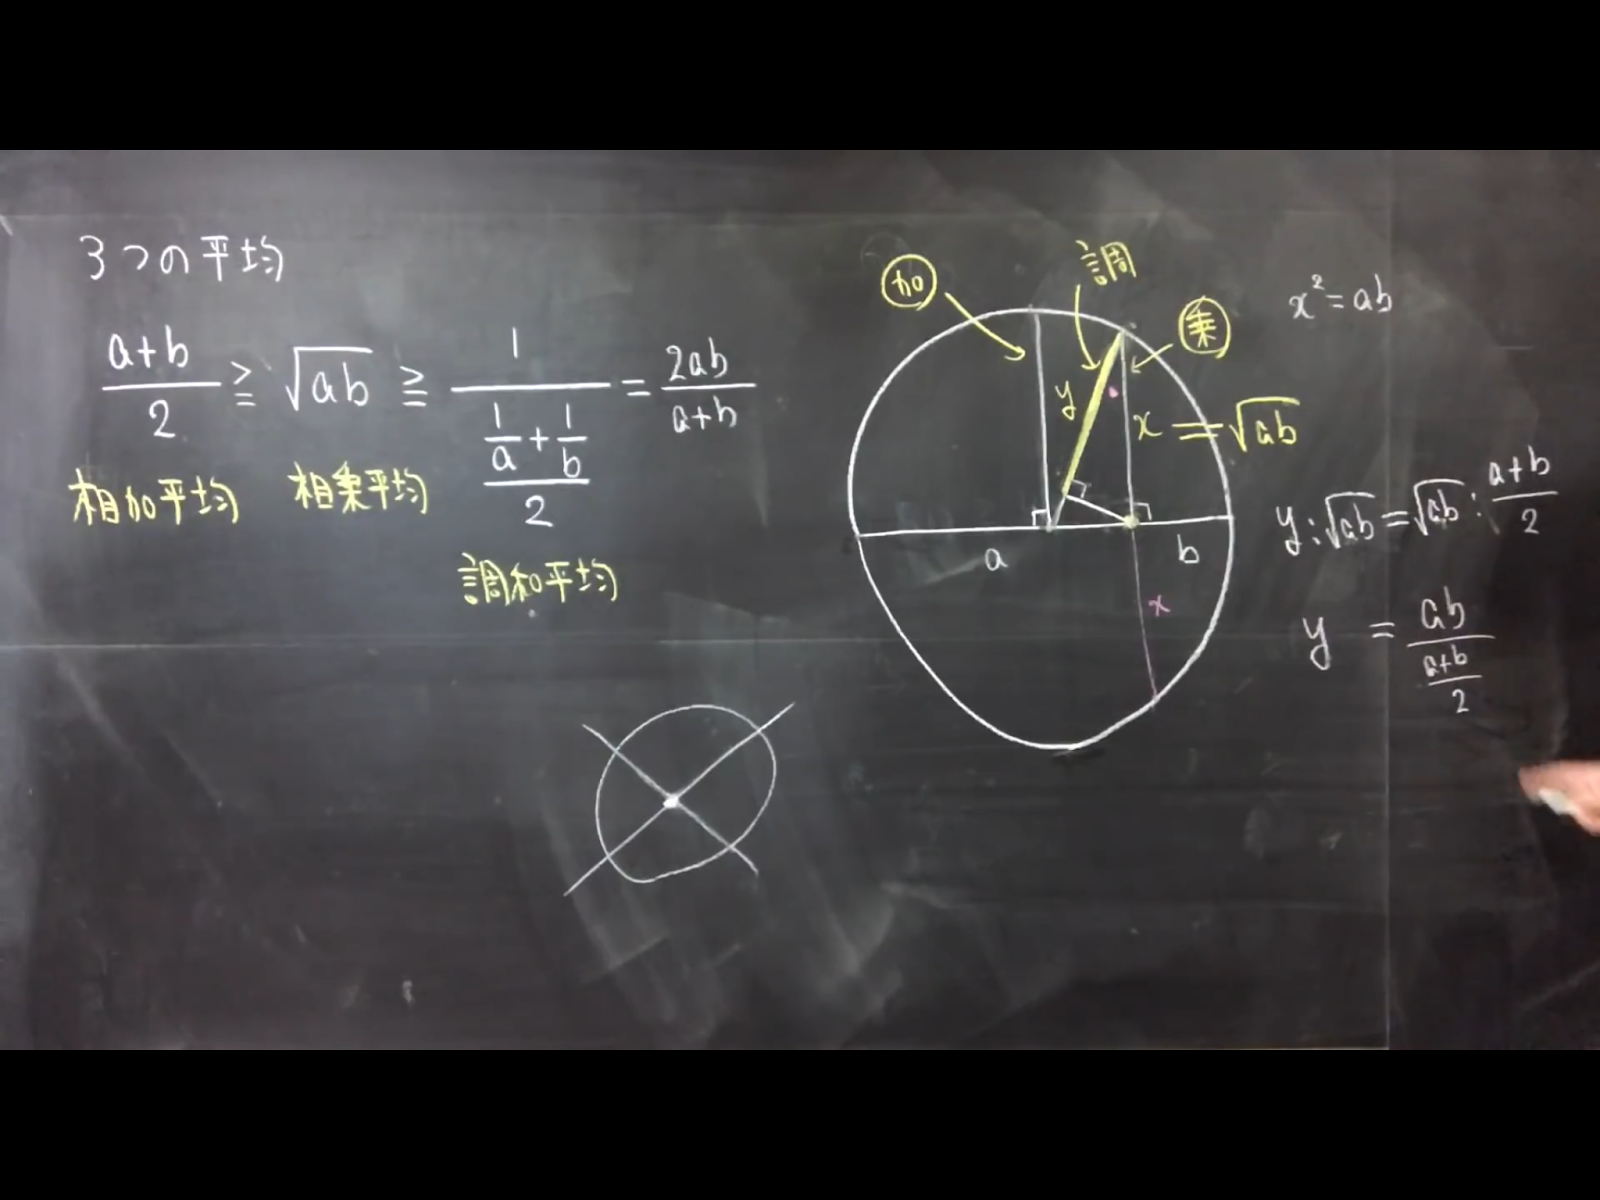 3つの平均
a+b/2 ≧ √ab ≧ 1/((1/a+1/b)/2) = 2ab/a+b
相加平均 相乗平均
調和平均
加 調 乗
y x = √ab
a b
x
x² = ab
y : √ab = √ab : a+b/2
y = ab/(a+b/2)